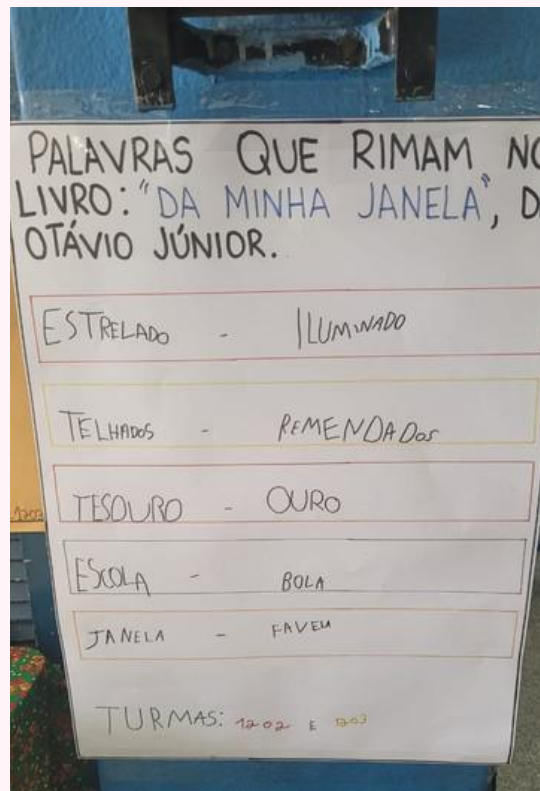 PALAVRAS QUE RIMAM NO
LIVRO: "DA MINHA JANELA", D
OTÁVIO JÚNIOR.
ESTRELADO - ILUMINADO
TELHADOS - REMENDADOS
TESOURO - OURO
ESCOLA - BOLA
JANELA - FAVELA
TURMAS: 1202 E 1203
1203